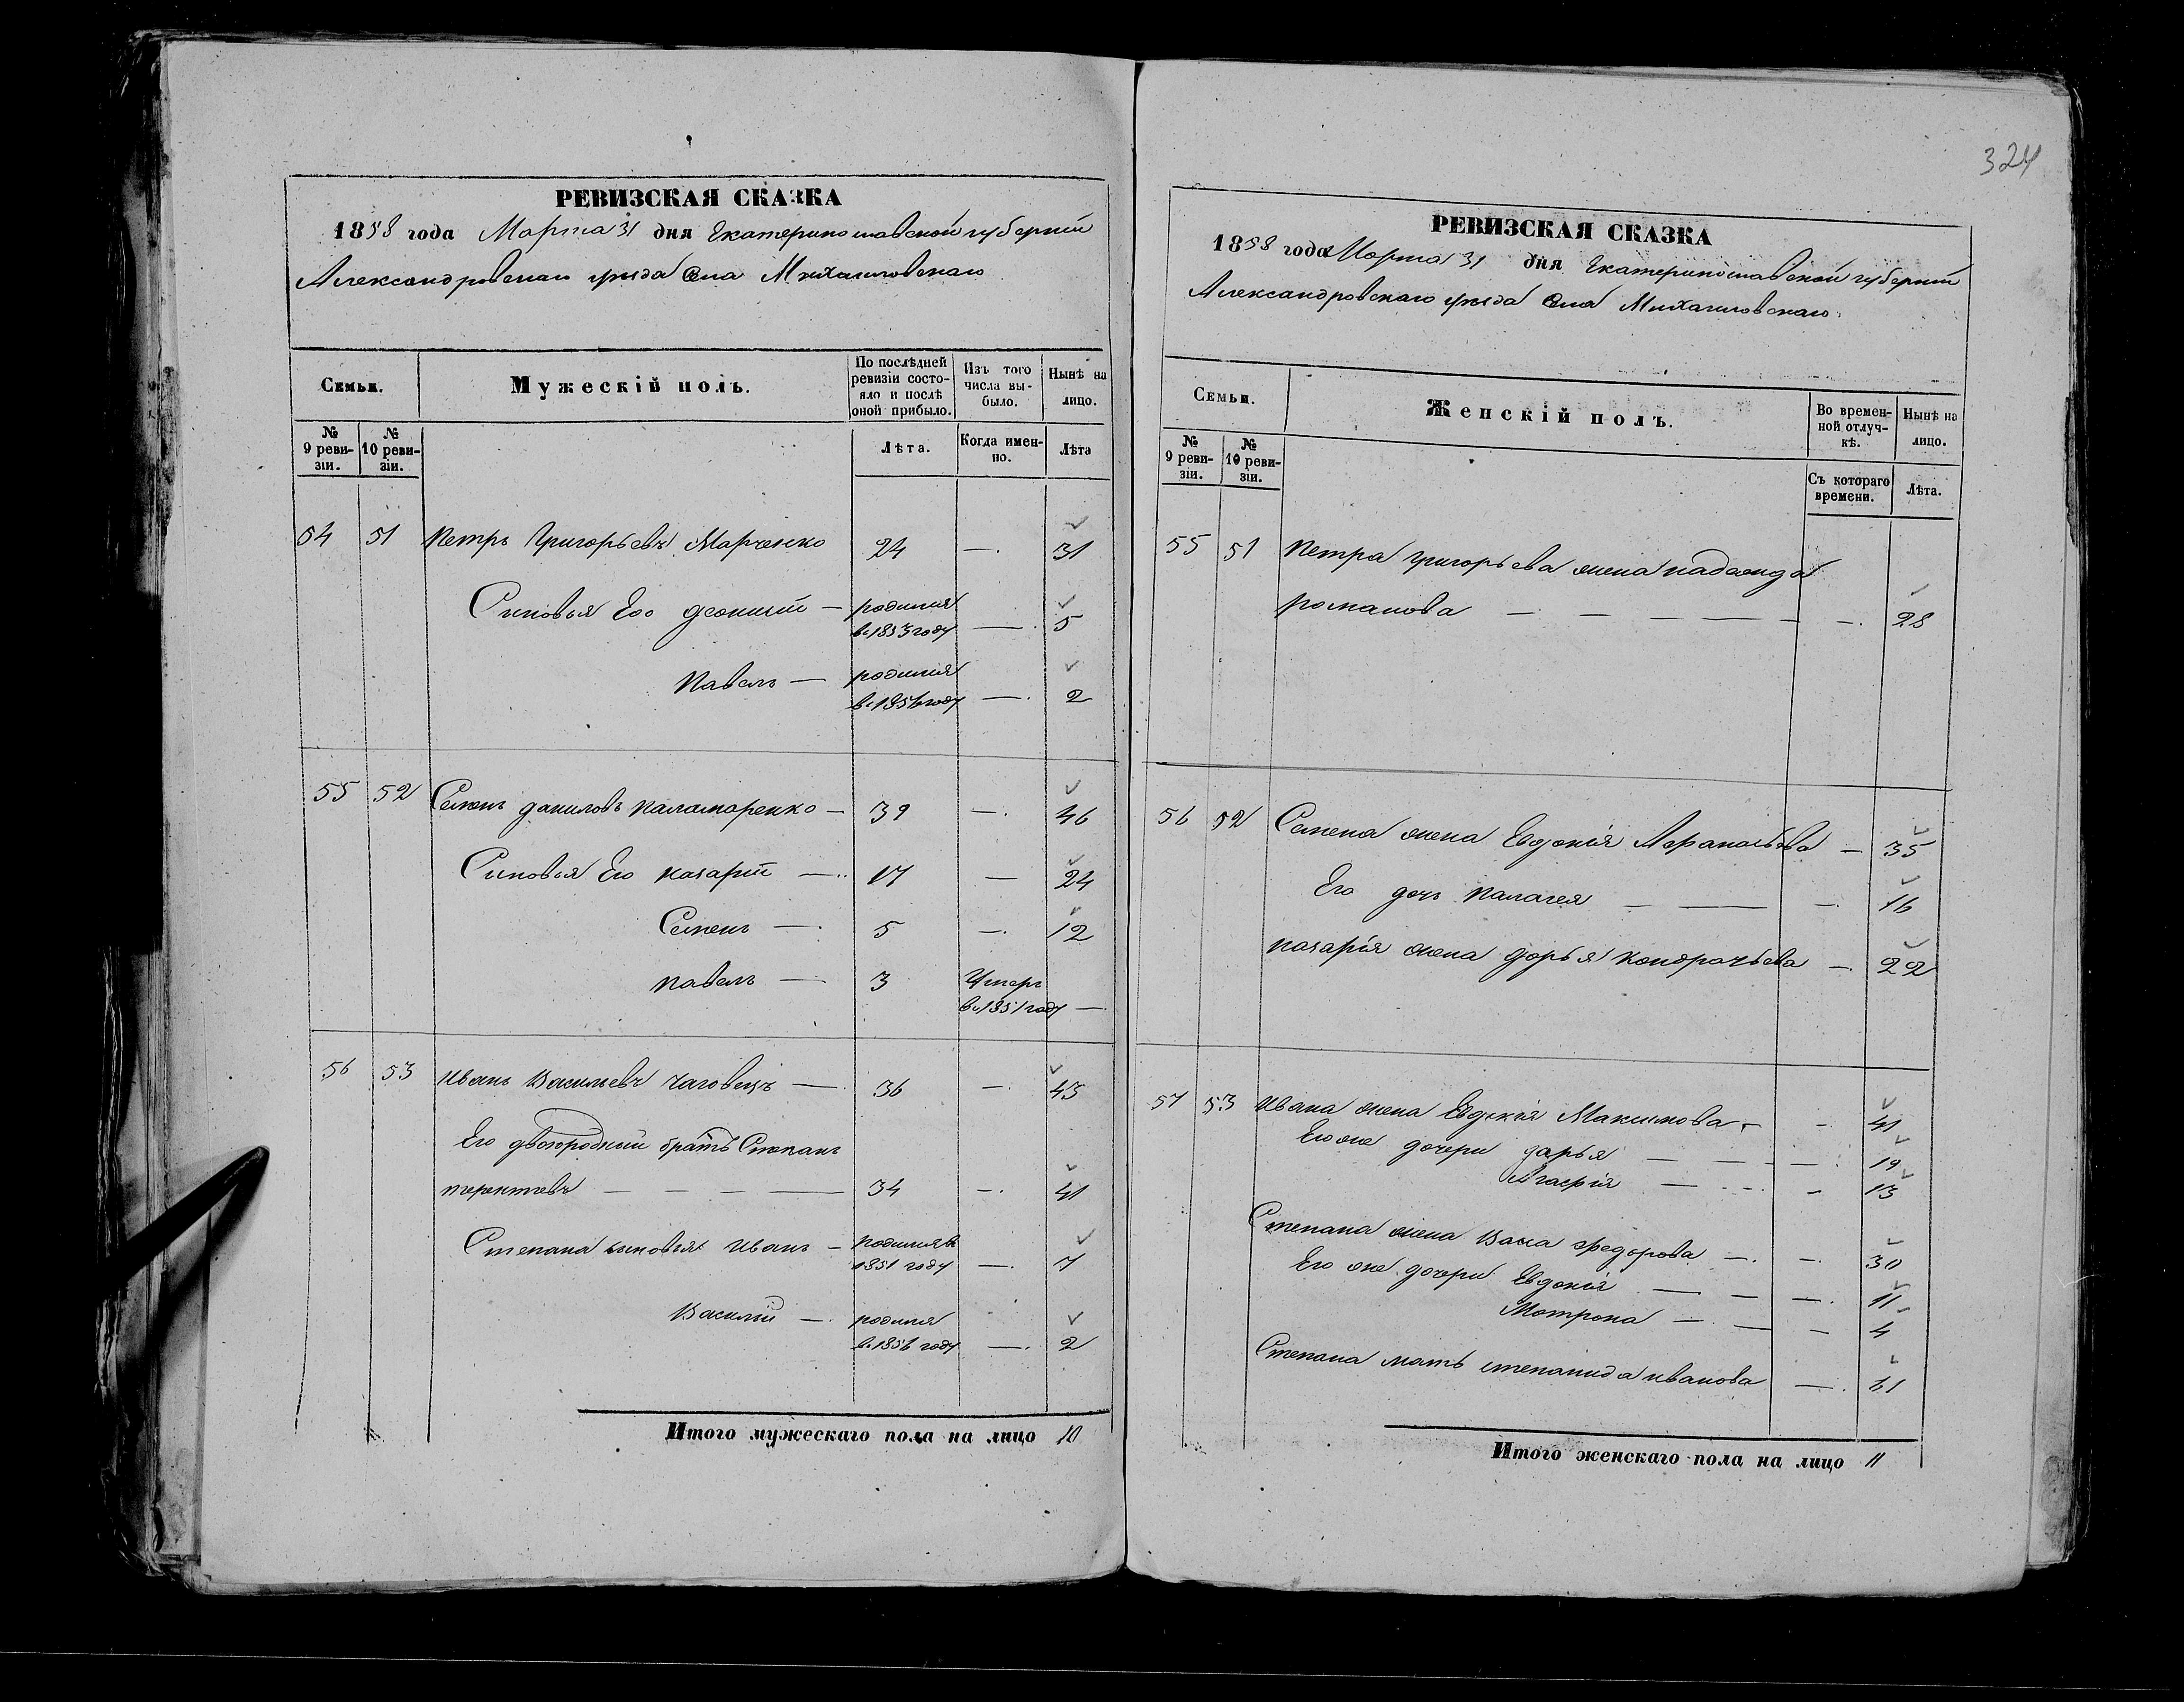 324
РЕВИЗСКАЯ СКАЗКА
1858 года Марта 31 дня Екатеринославской губернии
Александровскаго уезда Села Михайловскаго
Семьи. Мужескій полъ. По послѣдней ревизіи состояло и послѣ оной прибыло. Изъ того числа выбыло. Нынѣ на лицо.
№ 9 ревизіи. № 10 ревизіи. Лѣта. Когда именно. Лѣта
54 51 Петръ Григорьевъ Марченко 24 —. 31
Сыновья Его Леонтий — родился
в 1853 году —. 5
Павелъ — родился
в 1856 году —. 2
55 52 Семенъ Даниловъ Паламаренко — 39 —. 46
Сыновья Его Назарий — 17 — 24
Семенъ — 5 —. 12
Павелъ — 3 Умеръ
в 1851 году —
56 53 Иванъ Васильевъ Чаговецъ — 36 —. 43
Его двоюродный братъ Степанъ
Терентьевъ — — — — 34 —. 41
Степана сыновья Иванъ — родился в
1851 году —. 7
Василий — родился
в 1856 году —. 2
Итого мужескаго пола на лицо 10
РЕВИЗСКАЯ СКАЗКА
1858 года Марта 31 дня Екатеринославской губернии
Александровскаго уезда Села Михайловскаго
Семьи. Женскій полъ. Во временной отлучкѣ. Нынѣ на лицо.
№ 9 ревизіи. № 10 ревизіи. Съ котораго времени. Лѣта.
55 51 Петра Григорьева жена Надежда
Романова — — — — — —. 28
56 52 Семена жена Евдокія Афанасьева — 35
Его дочь Палагея — — — 16
Назарія жена Дарья Кондратьева — 22
57 53 Ивана жена Евдокія Максимова — - 41
Его же дочери Дарья — — - —. 19
Глафіра — - 13
Степана жена Васса Федорова —. —. 30
Его же дочери Евдокія — — —. 11
Мотрона — — — 4
Степана мать Степанида Иванова —. 61
Итого женскаго пола на лицо 11